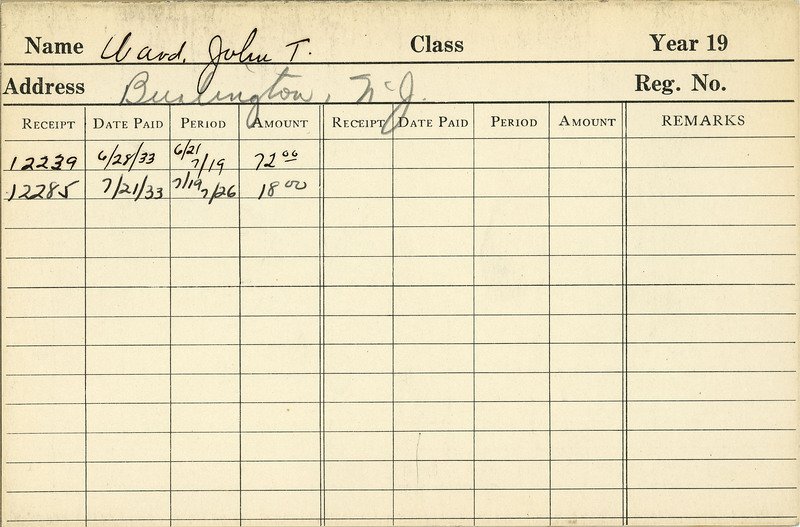 Name Ward, John T. Class Year 19
Address Burlington, N.J. Reg. No.
RECEIPT DATE PAID PERIOD AMOUNT RECEIPT DATE PAID PERIOD AMOUNT REMARKS
12239 6/28/33 6/21 7/19 72 00
12285 7/21/33 7/19 7/26 18 00